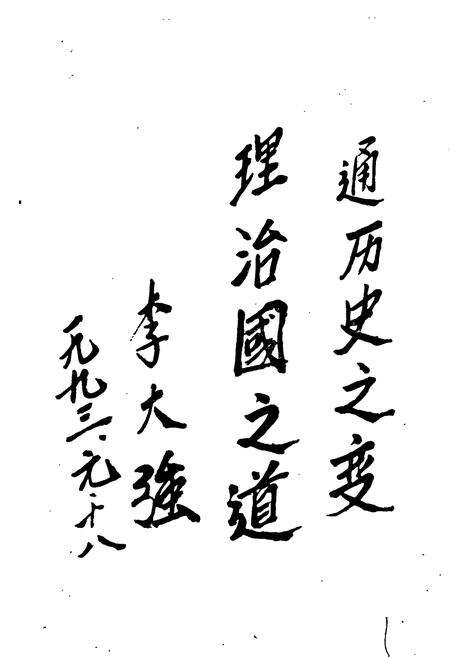 通历史之变
理治國之道
李大強
一九九三、元、十八